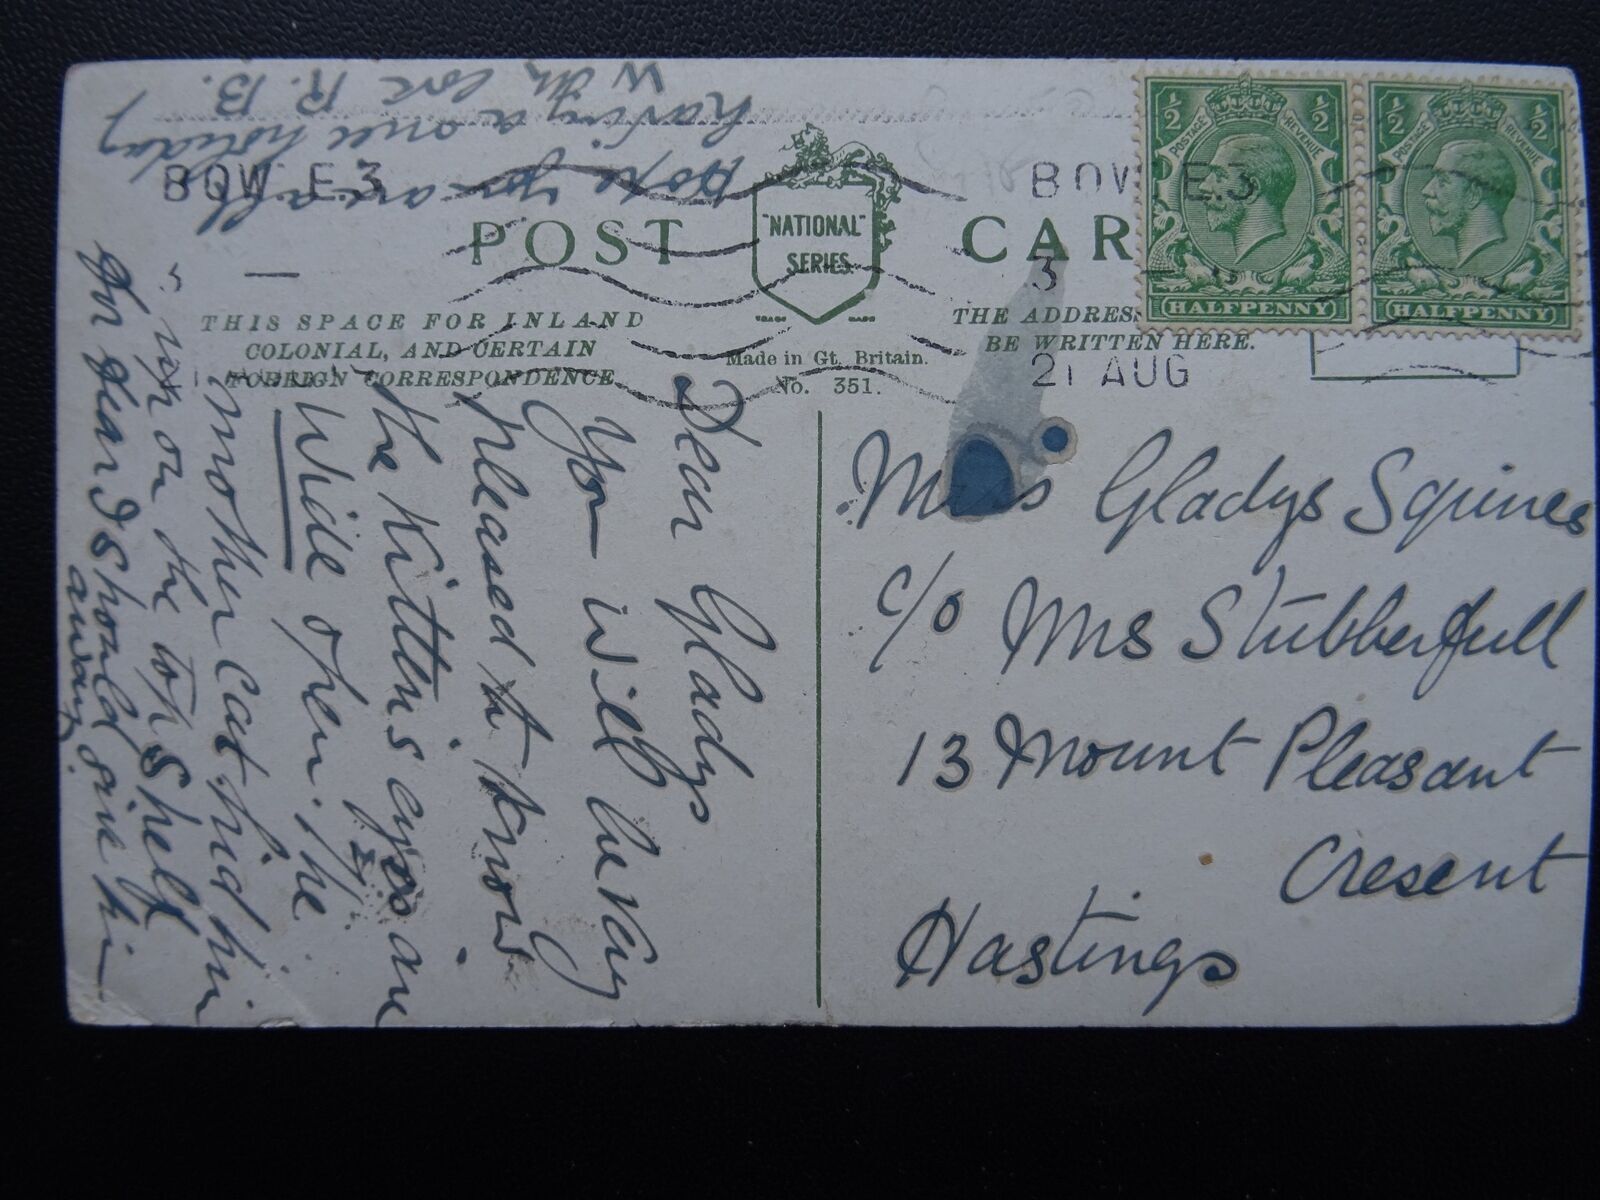 POST CAR
"NATIONAL"
SERIES
TRADE MARK
THIS SPACE FOR INLAND
COLONIAL, AND CERTAIN
FOREIGN CORRESPONDENCE
Made in Gt. Britain.
No. 351.
THE ADDRESS
BE WRITTEN HERE.
BOW E.3
BOW E.3
3
21 AUG
1/2 1/2
POSTAGE REVENUE
HALFPENNY
1/2 1/2
POSTAGE REVENUE
HALFPENNY
Dear Gladys
You will be very
pleased to know
the Kittens eyes are
Wide open. The
mother cat hid him
up on the top shelf
Oh dear I should give him
away
Hope you are all
having a nice holiday
With love R. B.
Miss Gladys Squires
c/o Mrs Stubberfull
13 Mount Pleasant
Cresent
Hastings